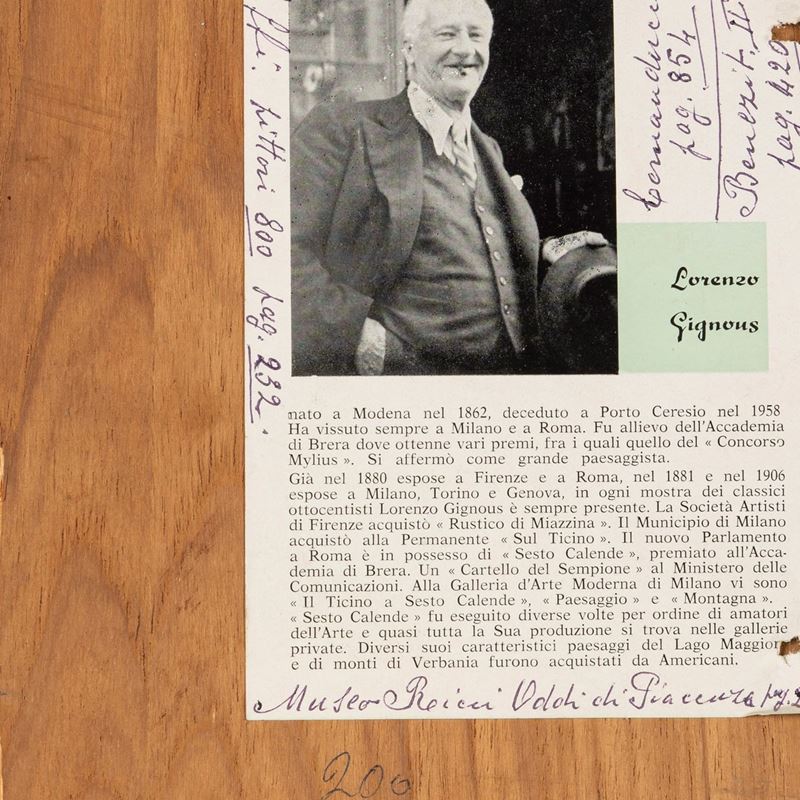 pittori 800 pag. 232.
pag. 854
Benezit. II
pag. 420
Lorenzo
Gignous
nato a Modena nel 1862, deceduto a Porto Ceresio nel 1958
Ha vissuto sempre a Milano e a Roma. Fu allievo dell'Accademia
di Brera dove ottenne vari premi, fra i quali quello del « Concorso
Mylius ». Si affermò come grande paesaggista.
Già nel 1880 espose a Firenze e a Roma, nel 1881 e nel 1906
espose a Milano, Torino e Genova, in ogni mostra dei classici
ottocentisti Lorenzo Gignous è sempre presente. La Società Artisti
di Firenze acquistò « Rustico di Miazzina ». Il Municipio di Milano
acquistò alla Permanente « Sul Ticino ». Il nuovo Parlamento
a Roma è in possesso di « Sesto Calende », premiato all'Acca-
demia di Brera. Un « Cartello del Sempione » al Ministero delle
Comunicazioni. Alla Galleria d'Arte Moderna di Milano vi sono
« Il Ticino a Sesto Calende », « Paesaggio » e « Montagna ».
« Sesto Calende » fu eseguito diverse volte per ordine di amatori
dell'Arte e quasi tutta la Sua produzione si trova nelle gallerie
private. Diversi suoi caratteristici paesaggi del Lago Maggiore
e di monti di Verbania furono acquistati da Americani.
Museo Ricci Oddi di Piacenza pag.
200